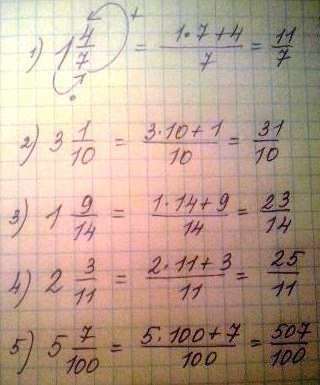 1) 1 4/7 = (1·7+4)/7 = 11/7
2) 3 1/10 = (3·10+1)/10 = 31/10
3) 1 9/14 = (1·14+9)/14 = 23/14
4) 2 3/11 = (2·11+3)/11 = 25/11
5) 5 7/100 = (5·100+7)/100 = 507/100